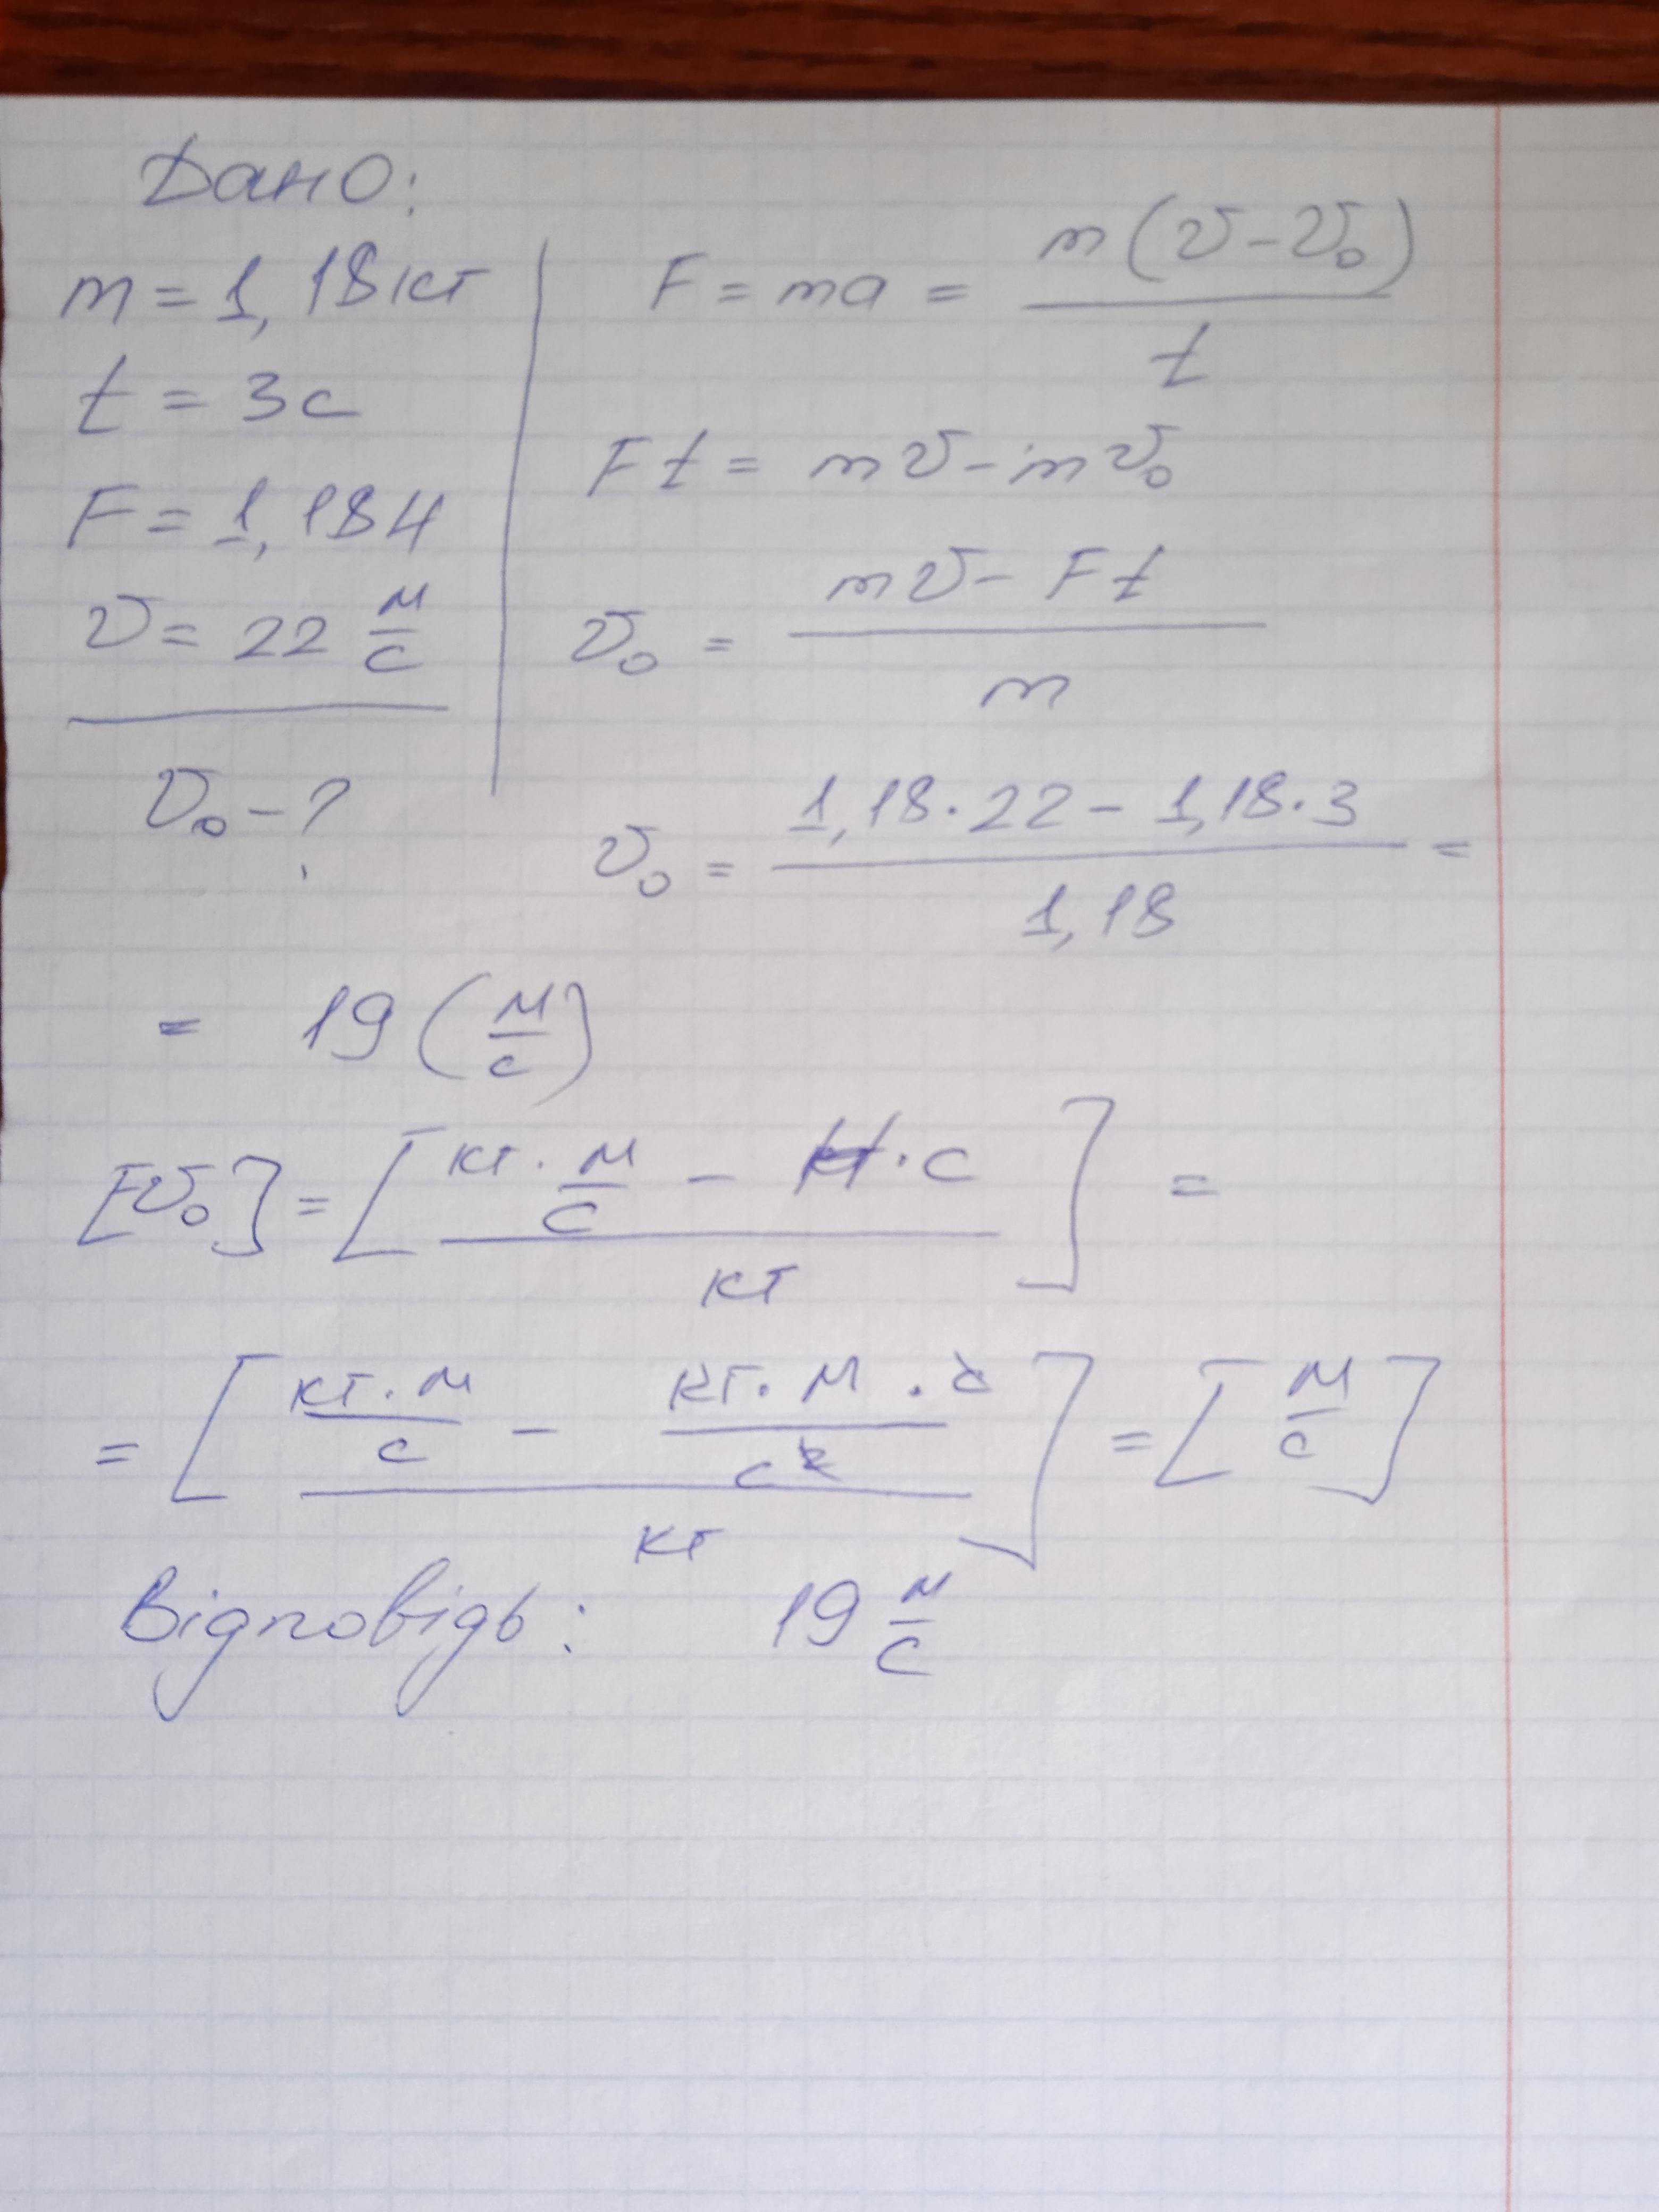 Дано:
m = 1,18 кг
t = 3 с
F = 1,18 Н
v = 22 м/с
v₀ - ?
F = ma = m(v - v₀)/t
Ft = mv - mv₀
v₀ = (mv - Ft)/m
v₀ = (1,18 · 22 - 1,18 · 3)/1,18 =
= 19 (м/с)
[v₀] = [(кг · м/с - Н · с)/кг] =
= [(кг · м/с - кг · м · с/с²)/кг] = [м/с]
Відповідь: 19 м/с